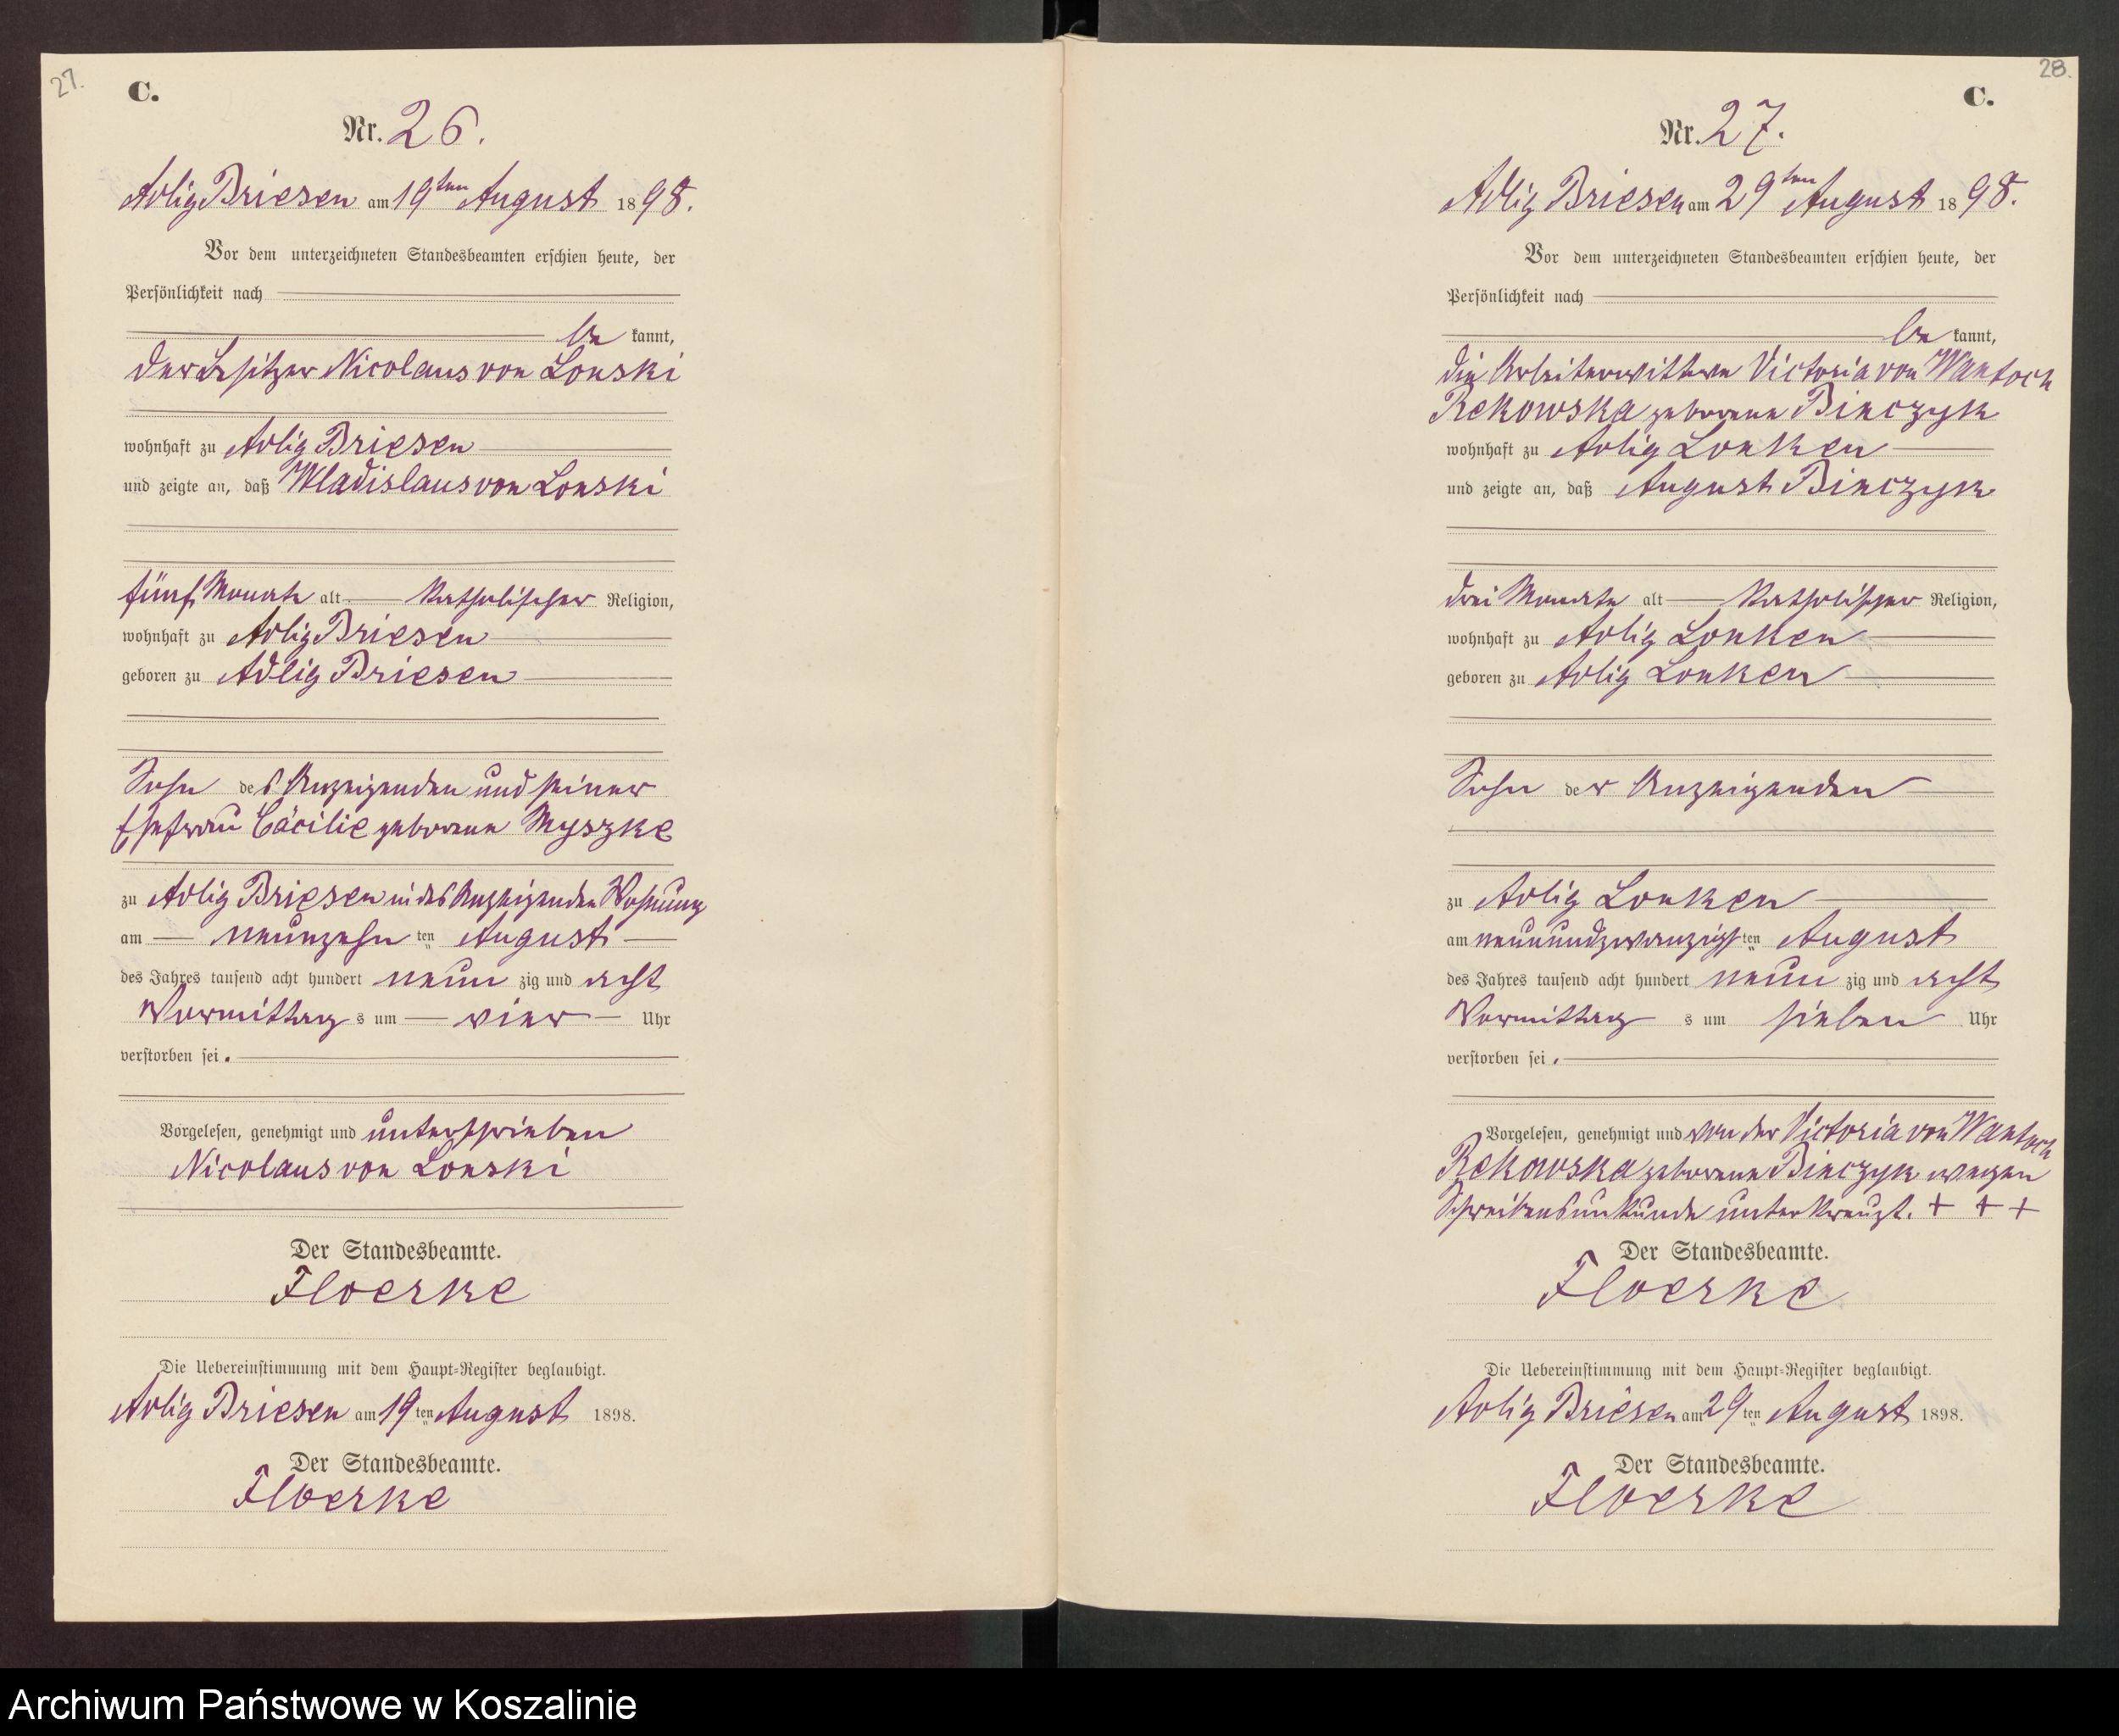 27.
C.
Nr. 26.
Adlig Briesen am 19ten August 1898.
Vor dem unterzeichneten Standesbeamten erschien heute, der
Persönlichkeit nach
bekannt,
der Besitzer Nicolaus von Lonski
wohnhaft zu Adlig Briesen
und zeigte an, daß Wladislaus von Lonski
fünf Monate alt katholischer Religion,
wohnhaft zu Adlig Briesen
geboren zu Adlig Briesen
Sohn des Anzeigenden und seiner
Ehefrau Cäcilie geborene Myszke
zu Adlig Briesen in des Anzeigenden Wohnung
am neunzehnten August
des Jahres tausend acht hundert neunzig und acht
Vormittags um vier Uhr
verstorben sei.
Vorgelesen, genehmigt und unterschrieben
Nicolaus von Lonski
Der Standesbeamte.
Floerke
Die Uebereinstimmung mit dem Haupt-Register beglaubigt.
Adlig Briesen am 19ten August 1898.
Der Standesbeamte.
Floerke
28.
C.
Nr. 27.
Adlig Briesen am 29ten August 1898.
Vor dem unterzeichneten Standesbeamten erschien heute, der
Persönlichkeit nach
bekannt,
die Arbeiterwittwe Victoria von Wantoch
Rekowska geborene Binczyk
wohnhaft zu Adlig Lonken
und zeigte an, daß August Binczyk
drei Monate alt katholischer Religion,
wohnhaft zu Adlig Lonken
geboren zu Adlig Lonken
Sohn der Anzeigenden
zu Adlig Lonken
am neunundzwanzigsten August
des Jahres tausend acht hundert neunzig und acht
Vormittags um sieben Uhr
verstorben sei.
Vorgelesen, genehmigt und von der Victoria von Wantoch
Rekowska geborene Binczyk wegen
Schreibensunkunde unterkreuzt. + + +
Der Standesbeamte.
Floerke
Die Uebereinstimmung mit dem Haupt-Register beglaubigt.
Adlig Briesen am 29ten August 1898.
Der Standesbeamte.
Floerke
Archiwum Państwowe w Koszalinie